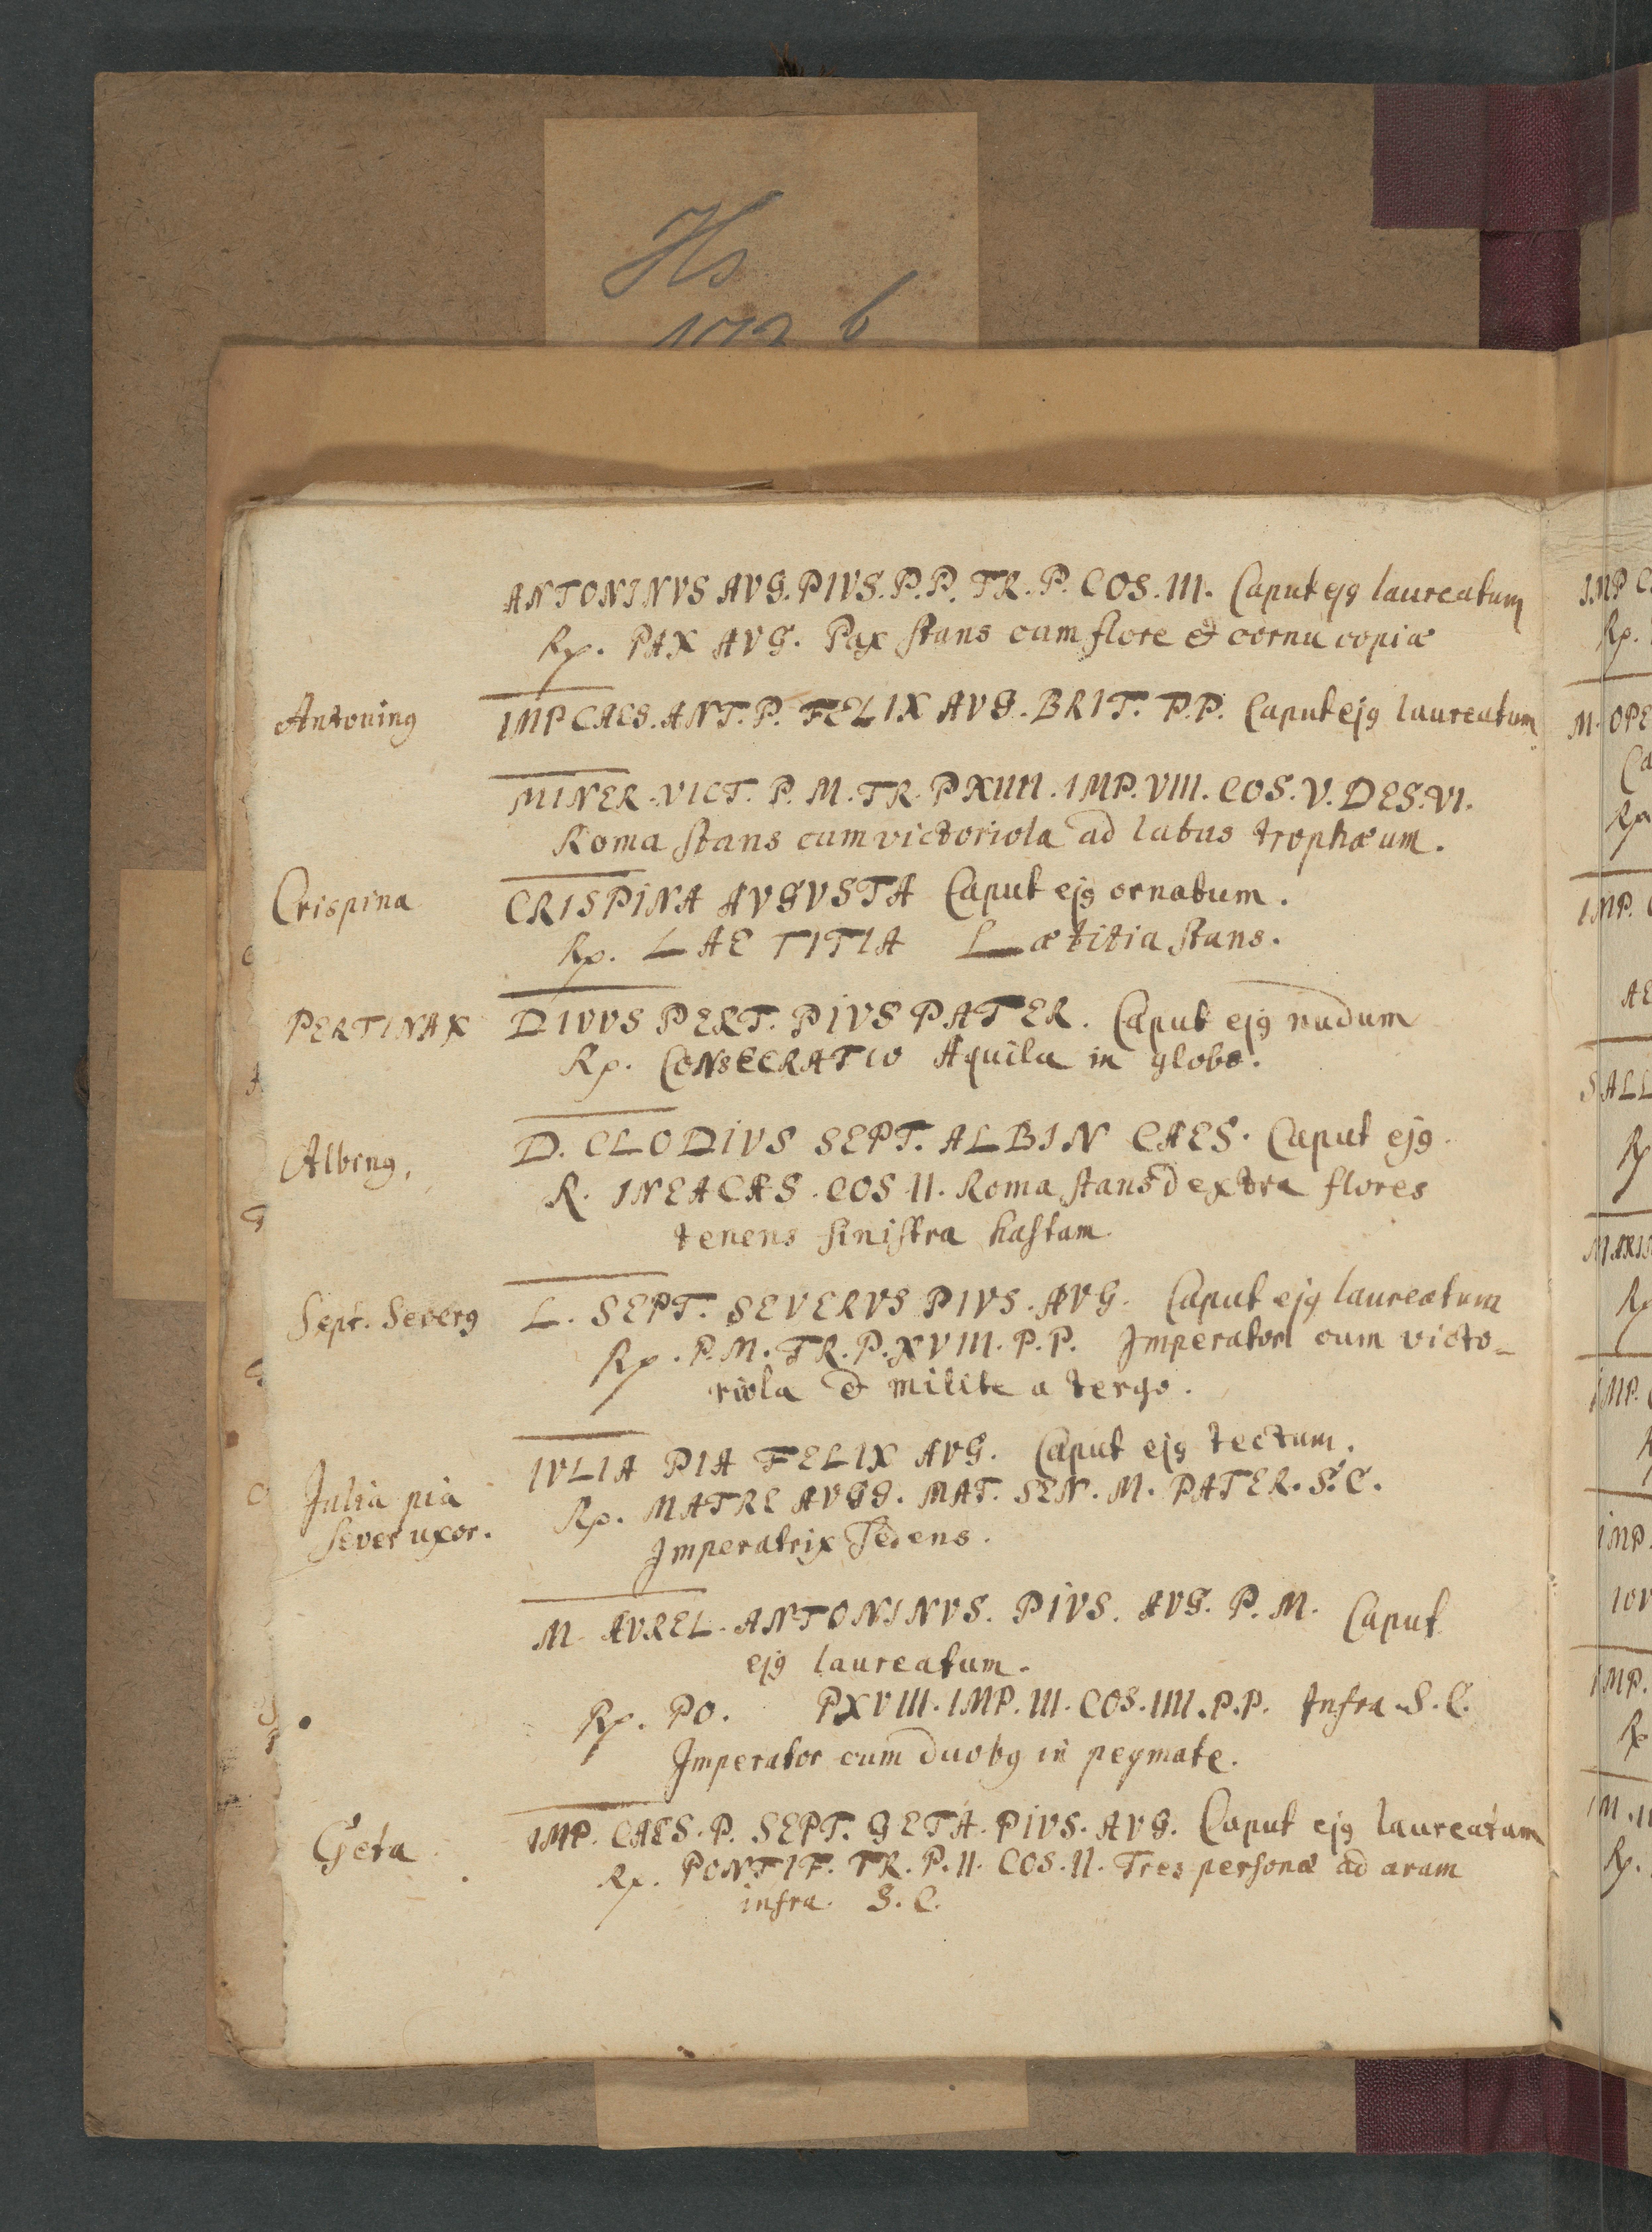 Hs
172 b
ANTONINVS AVG. PIVS. P.P. TR. P. COS. III. Caput ejꝰ laureatum
Rp. PAX AVG. Pax stans cum flore & cornu copiæ
Antoninꝰ IMP CAES. ANT. P. FELIX AVG. BRIT. P.P. Caput ejꝰ laureatum
MINER. VICT. P. M. TR. P XIIII. IMP. VIII. COS. V. DES. VI.
Roma stans cum victoriola ad latus trophæum.
Crispina CRISPINA AVGVSTA Caput ejꝰ ornatum.
Rp. LAE TITIA Lætitia stans.
PERTINAX DIVVS PERT. PIVS PATER. Caput ejꝰ nudum
Rp. CONSECRATIO Aquila in globo.
Albinꝰ. D. CLODIVS SEPT. ALBIN CAES. Caput ejꝰ
R. INEACAS. COS. II. Roma stans dextra flores
tenens sinistra hastam
Sept. Severꝰ L. SEPT. SEVERVS PIVS. AVG. Caput ejꝰ laureatum
Rp. P. M. TR. P. XVIII. P. P. Imperator cum victo-
riola & milite a tergo.
Julia pia IVLIA PIA FELIX AVG. Caput ejꝰ tectum.
Sever uxor. Rp. MATRE AVGG. MAT. SEN. M. PATER. S. C.
Imperatrix sedens.
M. AVREL. ANTONINVS. PIVS. AVG. P. M. Caput
ejꝰ laureatum.
Rp. PO. PXVIII. IMP. III. COS. IIII. P. P. Infra S. C.
Imperator cum duobꝰ in pegmate.
Geta IMP. CAES. P. SEPT. GETA. PIVS. AVG. Caput ejꝰ laureatum
Rp. PONTIF. TR. P. II. COS. II. Tres personæ ad aram
infra. S. C.